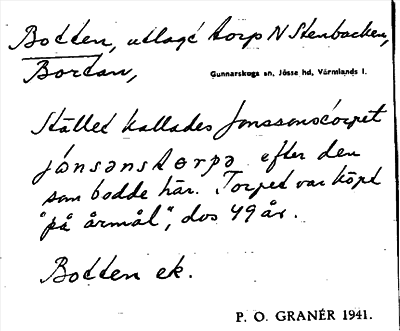 Botten, utlagt torp N Stenbacken,
Bortan,
Gunnarskogs sn, Jösse hd, Värmlands l.
Stället kallades Jonssonstorpet
jónsənstɷrpə efter den
som bodde här. Torpet var köpt
"på årmål", dvs 49 år.
Botten ek.
P. O. GRANÉR 1941.